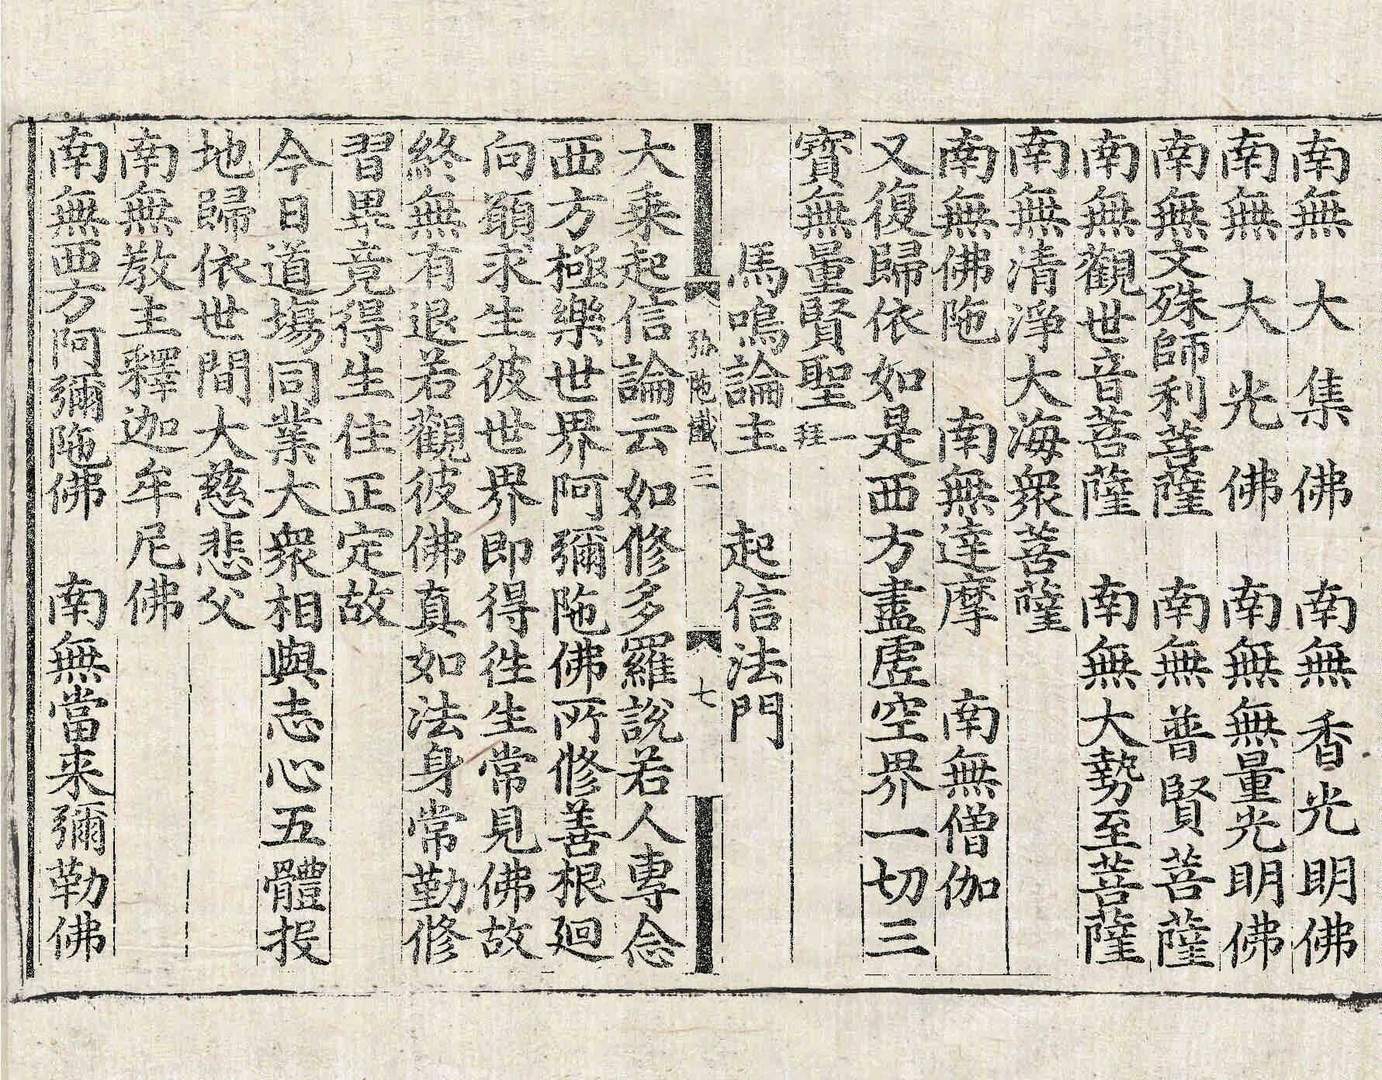 南無大集佛　南無香光明佛
南無大光佛　南無無量光明佛
南無文殊師利菩薩　南無普賢菩薩
南無觀世音菩薩　南無大勢至菩薩
南無清淨大海衆菩薩
南無佛陁　南無達摩　南無僧伽
又復歸依如是西方盡虛空界一切三
寶無量賢聖一拜
馬鳴論主　起信法門
弥陁懺二　七
大乘起信論云如修多羅說若人專念
西方極樂世界阿彌陁佛所修善根廻
向願求生彼世界即得徃生常見佛故
終無有退若觀彼佛真如法身常勤修
習畢竟得生住正定故
今日道場同業大衆相與志心五體投
地歸依世間大慈悲父
南無教主釋迦牟尼佛
南無西方阿彌陁佛　南無當來彌勒佛